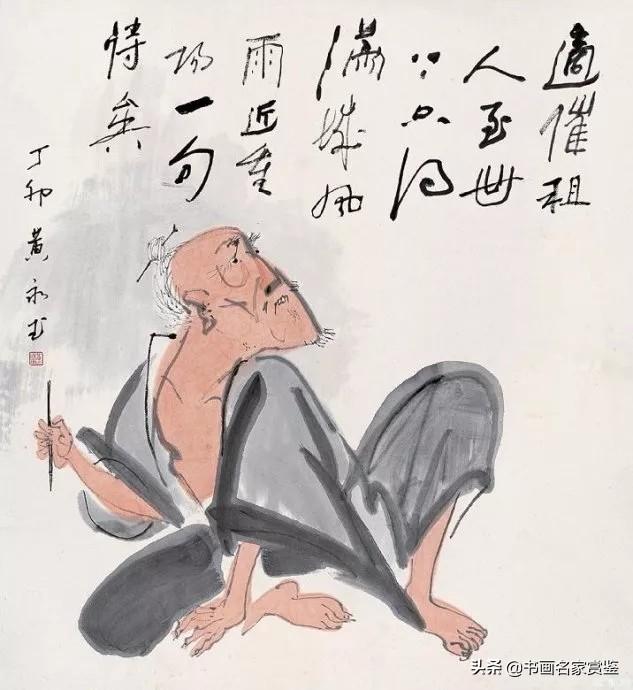 適催租
人至世
只得
滿城風
雨近重
陽一句
詩矣
丁卯黄永玉
头条 @书画名家赏鉴